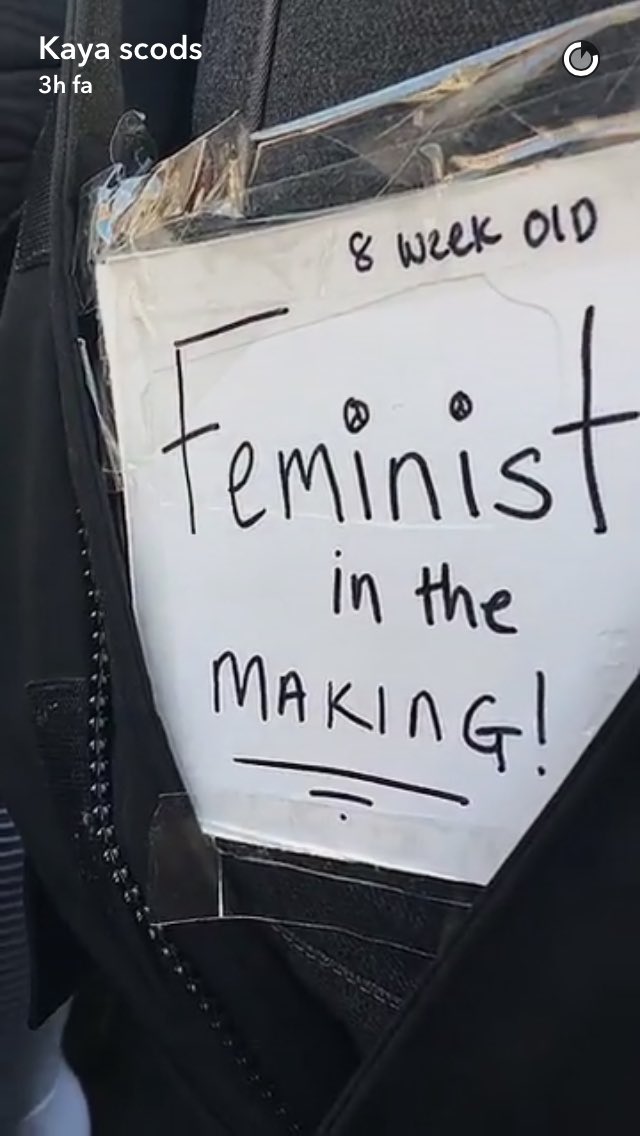 Kaya scods
3h fa
8 week OlD
Feminist
in the
MAKInG!